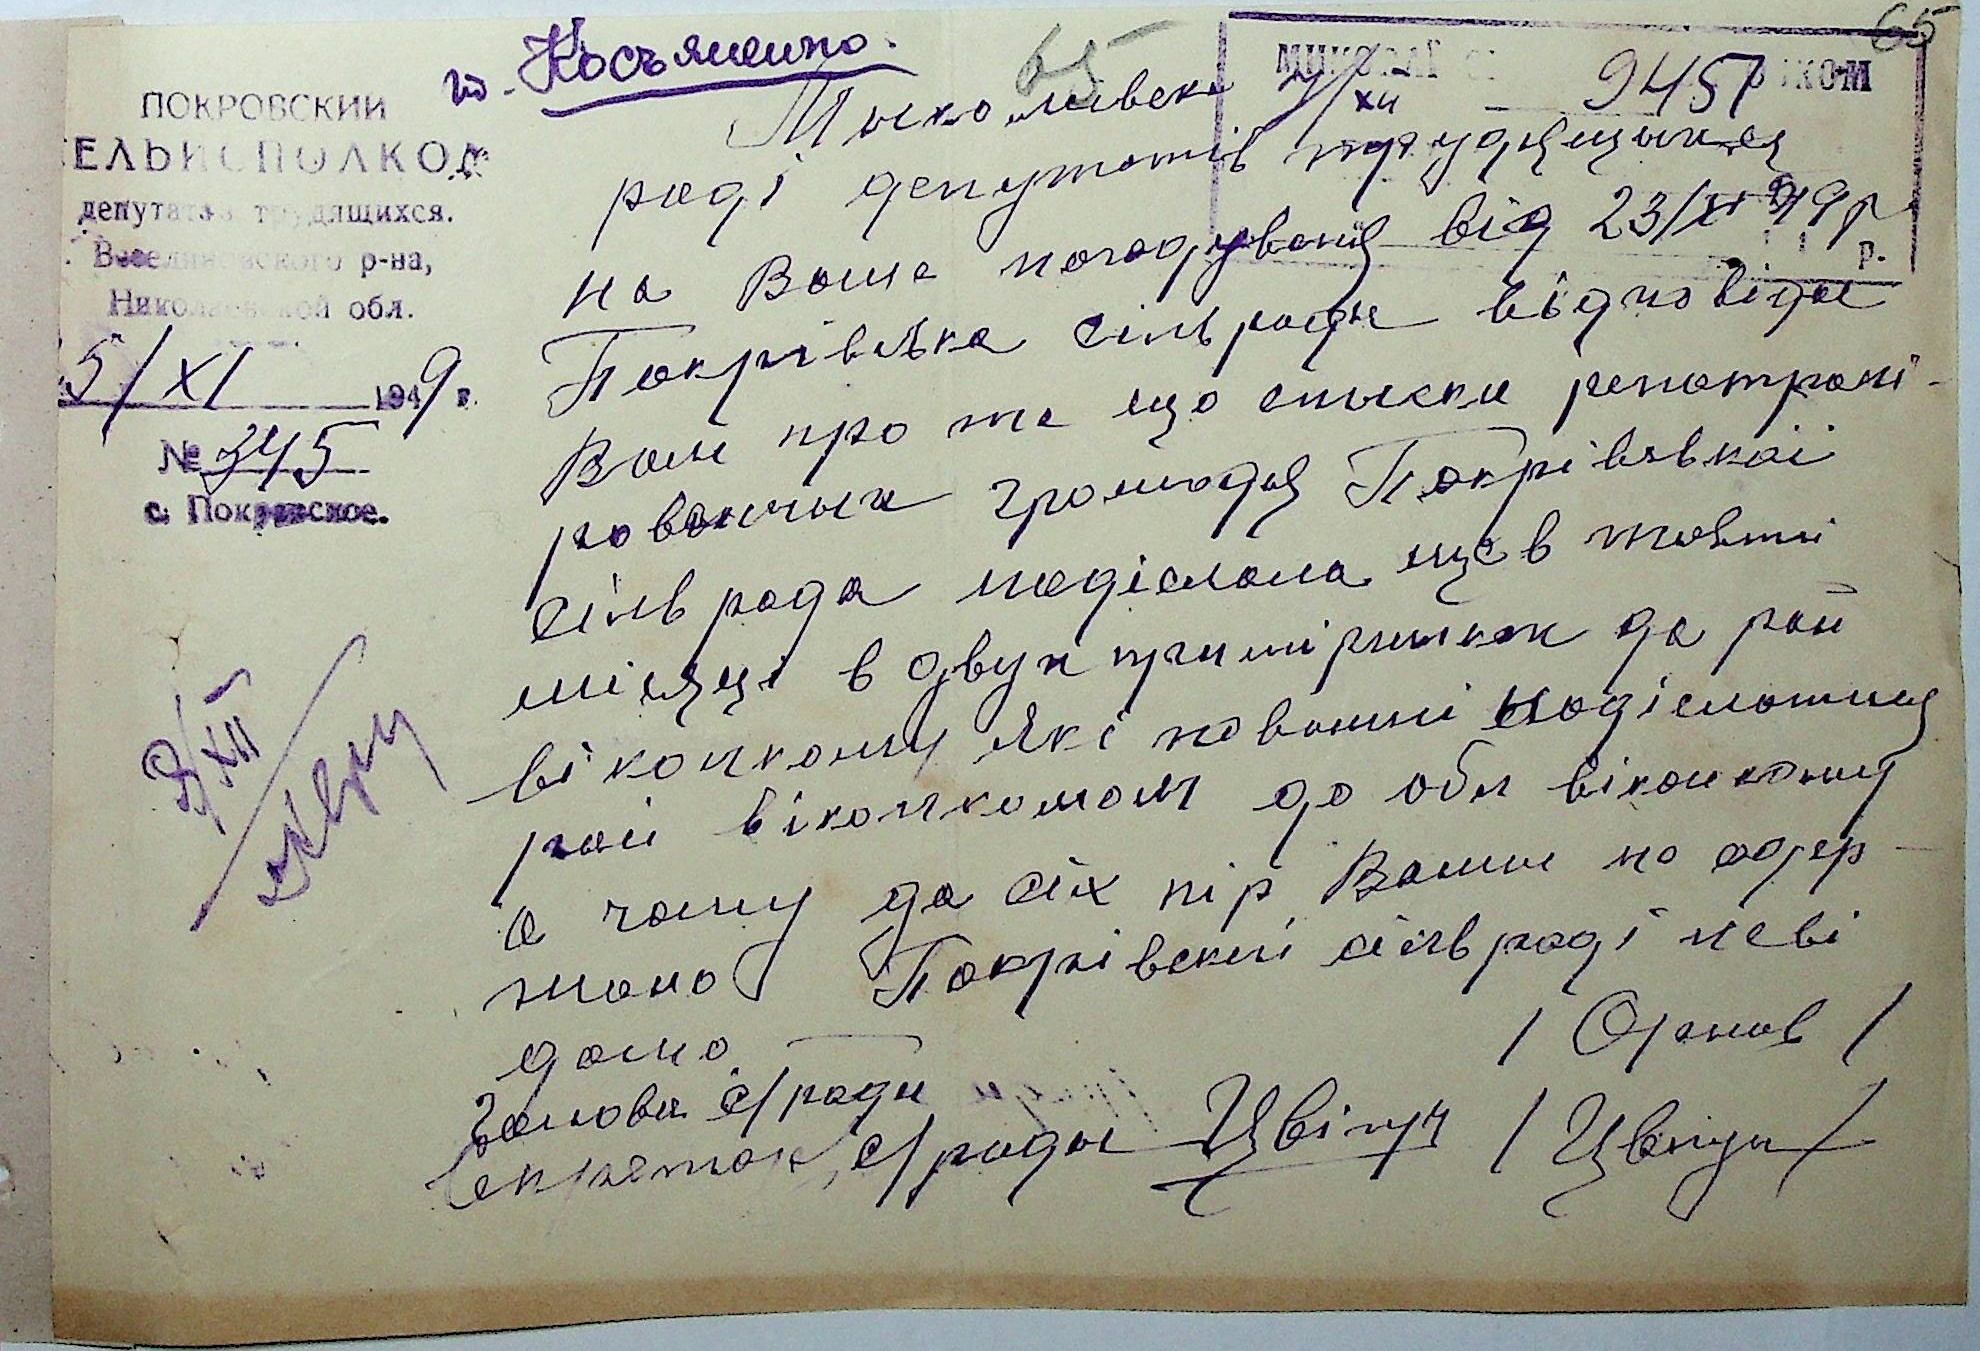 65
65
т. Косъяненко.
ПОКРОВСКИЙ
СЕЛЬИСПОЛКОМ
депутатов трудящихся.
Веселиновского р-на,
Николаевской обл.
5/XI 1949 г.
№ 345
с. Покровское.
9451
Миколаївск
раді депутатів трудящихся
на Ваше погодування від 23/XI 49 р
Покрівська сільрада відповіда
Вам про те що списки репатрай-
рованных громадя Покрівській
сільрада надіслала ще в жовтні
місяці в двух примірниках до рай
віконкому які повинні надіслатися
рай віконкомом до обл віконкому
а чому до сіх пір Вами но одер-
жано Покрівский сільраді неві
дамо
Голова с/ради
Секретар с/ради Цвігун / Цвігун /
2/XII